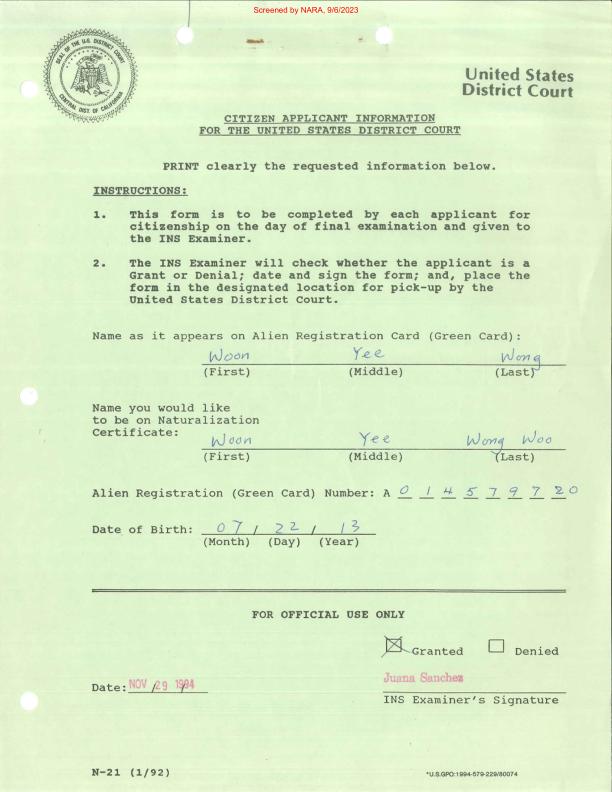 Screened by NARA, 9/6/2023
SEAL OF THE U.S. DISTRICT COURT
CENTRAL DIST. OF CALIFORNIA
United States
District Court
CITIZEN APPLICANT INFORMATION
FOR THE UNITED STATES DISTRICT COURT
PRINT clearly the requested information below.
INSTRUCTIONS:
1. This form is to be completed by each applicant for
citizenship on the day of final examination and given to
the INS Examiner.
2. The INS Examiner will check whether the applicant is a
Grant or Denial; date and sign the form; and, place the
form in the designated location for pick-up by the
United States District Court.
Name as it appears on Alien Registration Card (Green Card):
Woon Yee Wong
(First) (Middle) (Last)
Name you would like
to be on Naturalization
Certificate:
Woon Yee Wong Woo
(First) (Middle) (Last)
Alien Registration (Green Card) Number: A 0 1 4 5 7 9 7 2 0
Date of Birth: 07 / 22 / 13
(Month) (Day) (Year)
FOR OFFICIAL USE ONLY
Granted Denied
Juana Sanchez
Date: NOV 29 1994
INS Examiner's Signature
N-21 (1/92)
*U.S.GPO:1994-579-229/80074